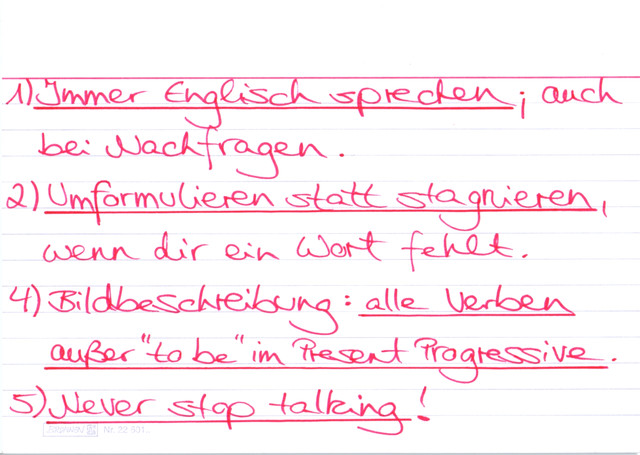 1) Immer Englisch sprechen; auch
bei Nachfragen.
2) Umformulieren statt stagnieren,
wenn dir ein Wort fehlt.
4) Bildbeschreibung: alle Verben
außer "to be" im Present Progressive.
5) Never stop talking!